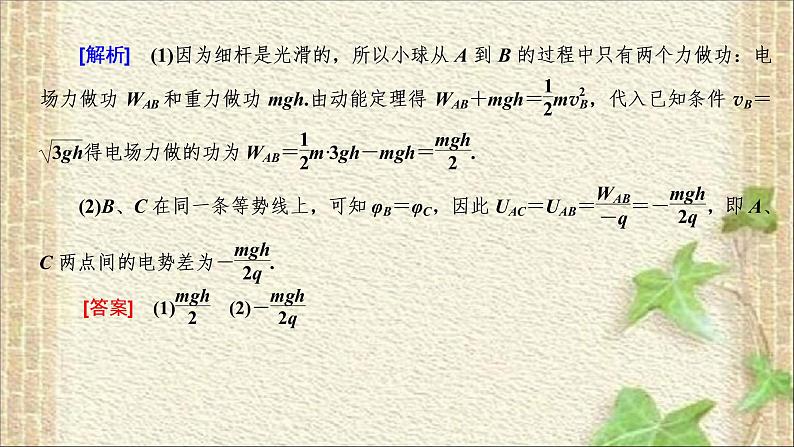 [解析] (1)因为细杆是光滑的，所以小球从 A 到 B 的过程中只有两个力做功：电
场力做功 W_{AB} 和重力做功 mgh.由动能定理得 W_{AB}＋mgh＝\frac{1}{2}mv_B^2，代入已知条件 v_B＝
\sqrt{3gh}得电场力做的功为 W_{AB}＝\frac{1}{2}m·3gh－mgh＝\frac{mgh}{2}.
(2)B、C 在同一条等势线上，可知 φ_B＝φ_C，因此 U_{AC}＝U_{AB}＝\frac{W_{AB}}{-q}＝－\frac{mgh}{2q}，即 A、
C 两点间的电势差为－\frac{mgh}{2q}.
[答案] (1)\frac{mgh}{2} (2)－\frac{mgh}{2q}